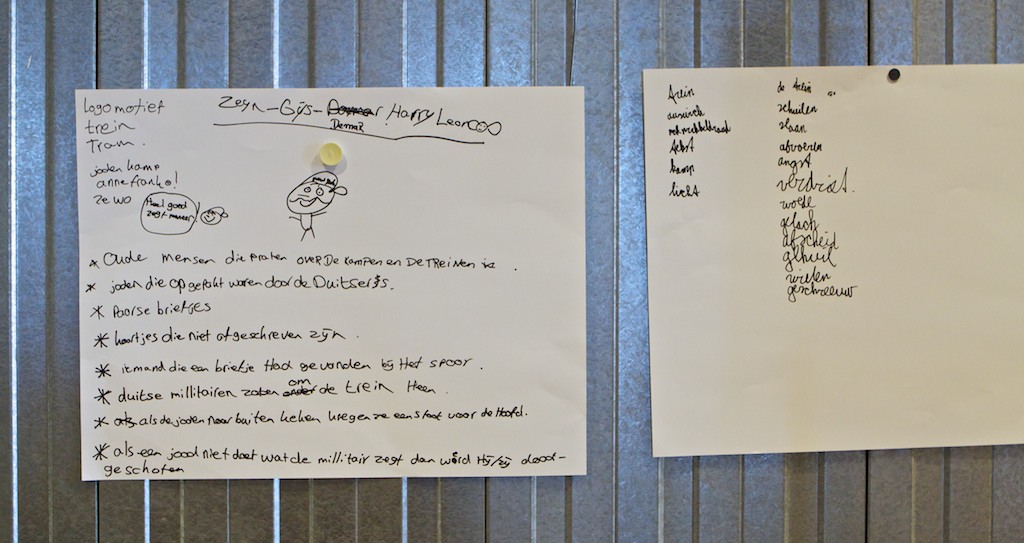 Logomotief
trein
Tram.
Zeyn-Gijs- Harry Leon
Demar
joden kamp
anne frank!
ze wo
Heel goed
zegt meneer
* Oude mensen die praten over De kampen en De Treinen
* joden die opgepakt waren door de Duitsers.
* Paarse brietjes
* kaartjes die niet afgeschreven zijn.
* iemand die een briefje Had gevonden bij Het spoor.
* duitse millitairen zaten om de trein Heen.
* als de joden naar buiten keken kregen ze een stoot voor de Hoofd.
* als een jood niet doet wat de millitair zegt dan word Hij/zij dood-
geschoten
trein
tekst
kamp
licht
de trein
schuilen
slaan
afvoeren
angst
verdriet.
woede
gelach
afscheid
gehuil
geschreeuw